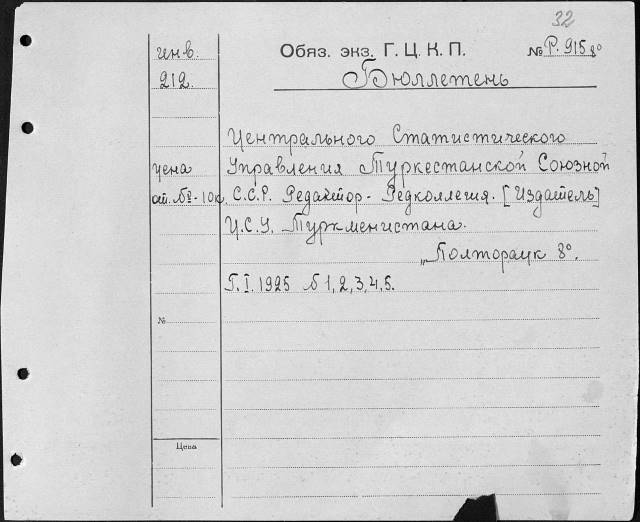 32
инв. Обяз. экз. Г. Ц. К. П. № Р. 915 8°
212. Бюллетень
Центрального Статистического
цена Управления Туркестанской Союзной
от. №- 10к. С.С.Р. Редактор - Редколлегия. [Издатель]
Ц.С.У. Туркменистана.
"Полторацк 8°.
Г. I. 1925 № 1, 2, 3, 4, 5.
№
Цена